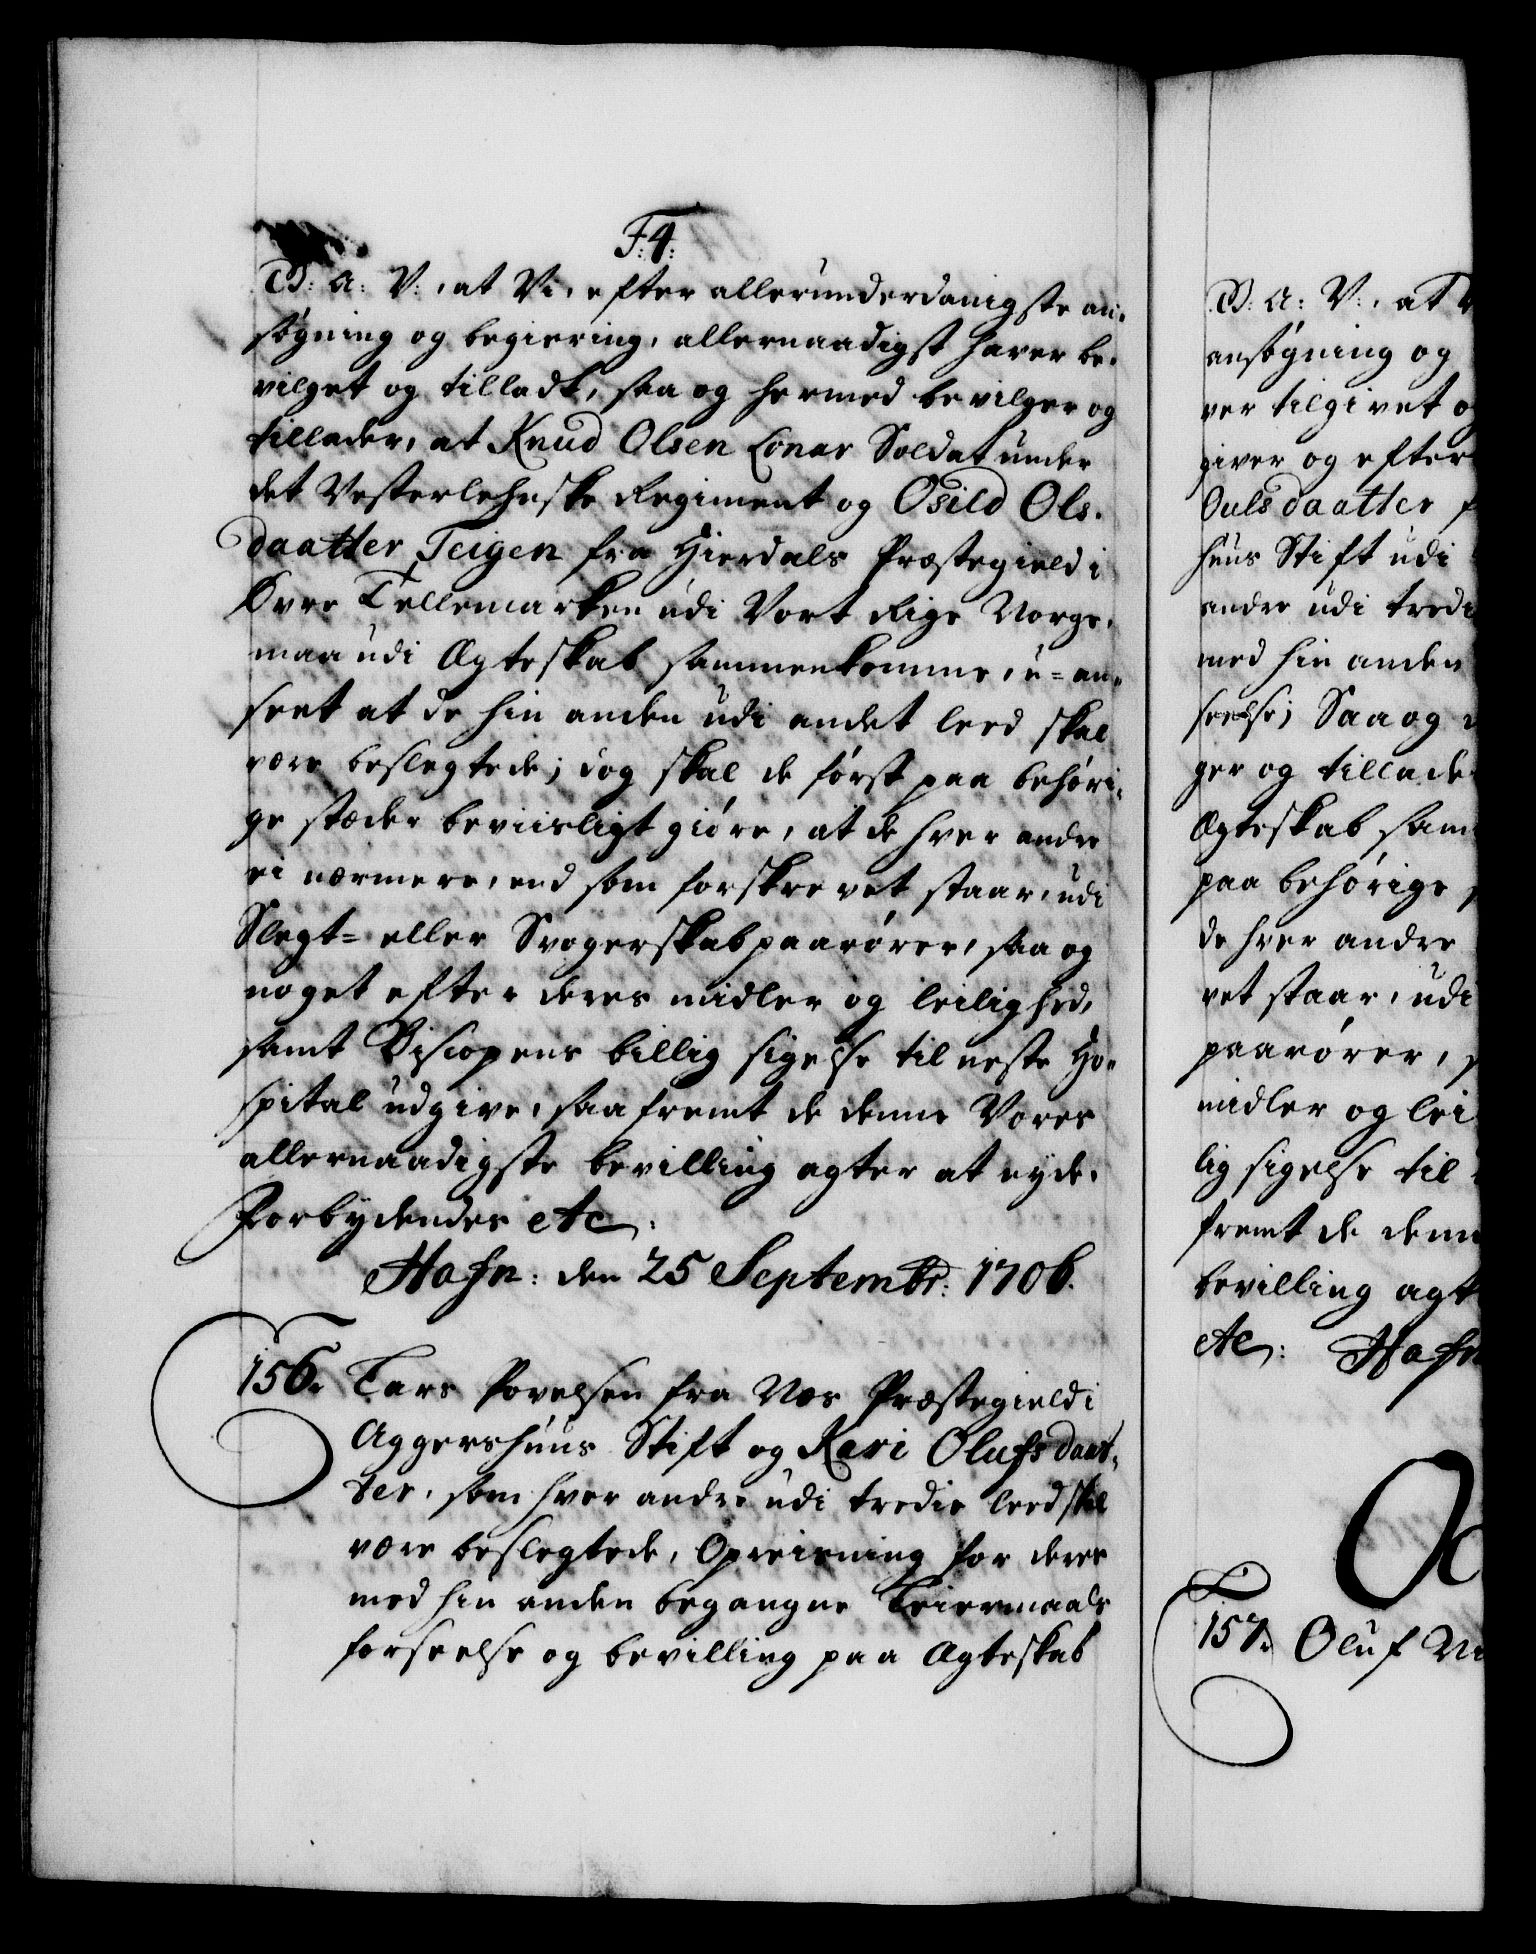 F: 4:
G: A: V:, at Vi, efter allerunderdanigste an-
søgning og begiering, allernaadigst haver be-
vilget og tilladt, saa og hermed bevilger og
tillader, at Knud Olsen Lonar Soldat under
det Vesterlehnske Regiment og Osild Ols-
daatter Teigen fra Hierdals Præstegield i
Øvre Tellemarken udi Vort Rige Norge,
maa udi Ægteskab sammenkomme, u-an-
seet at de hin anden udi andet leed skal
være beslegtede; dog skal de først paa behøri-
ge stæder beviisligt giøre, at de hver andre
ei nærmere, end som forskrevet staar, udi
Slegt- eller Svogerskab paarører, saa og
noget efter deres midler og leilighed,
samt Biscopens billig sigelse til neste Ho-
spital udgive, saafremt de denne Vores
allernaadigste bevilling agter at nyde.
Forbydendes etc:
Hafn: den 25 Septembr: 1706.
156. Lars Povelsen fra Næs Præstegield i
Aggershuus Stift og Kari Olufsdaat-
ter, som hver andre udi tredie leed skal
være beslegtede, Opreisning for deres
med hin anden begangne Leiermaals
forseelse og bevilling paa Ægteskab
G: A: V:, at V
ansøgning og
ver tilgivet o
giver og efter
Oulsdaatter f
huus Stift udi
andre udi tredi
med hin anden
seelse; Saa og
ger og tillade
Ægteskab sam
paa behørige
de hver andre
vet staar, udi
paarører, s
midler og lei
lig sigelse til
fremt de denn
bevilling agt
etc: Hafn
157. Oluf Ni